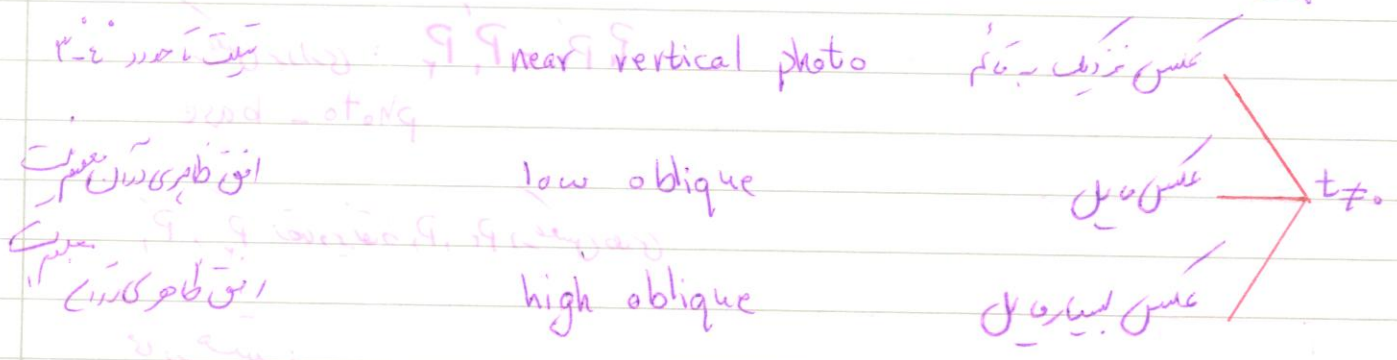 عکس نزدیک به قائم near vertical photo تیلت تا حدود ۳-٤°
t≠۰ عکس مایل low oblique افق ظاهری در آن معلوم نیست
عکس بسیار مایل high oblique افق ظاهری در آن